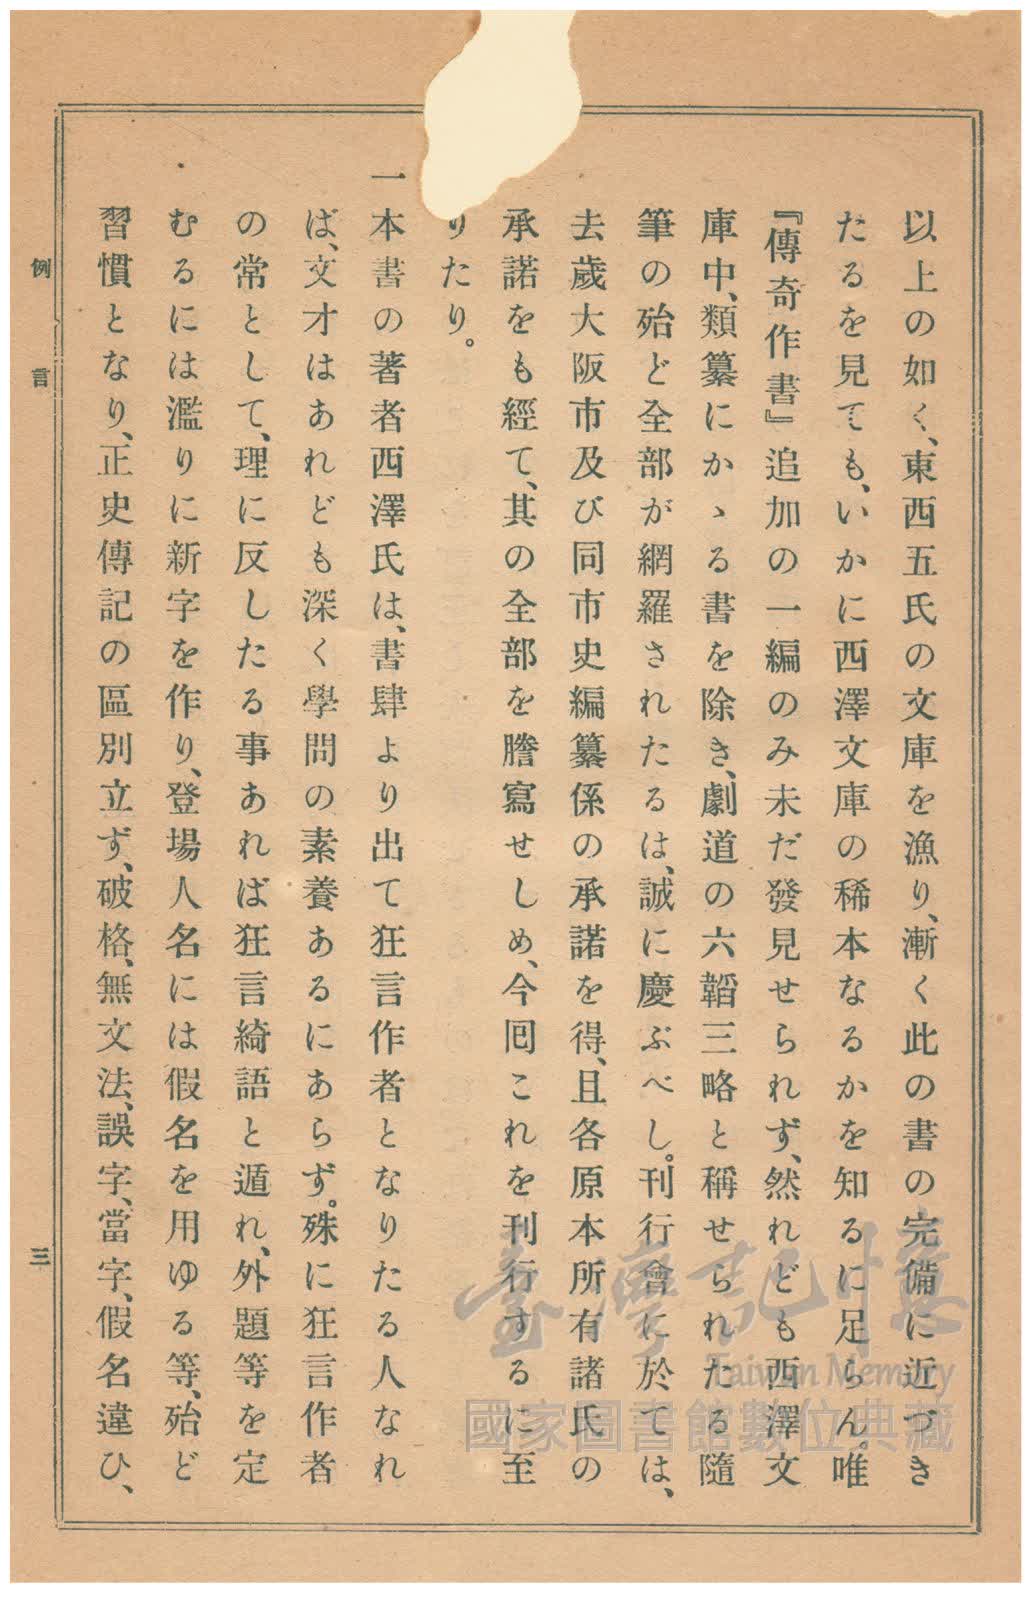 以上の如く、東西五氏の文庫を漁り、漸く此の書の完備に近づき
たるを見ても、いかに西澤文庫の稀本なるかを知るに足らん。唯
『傳奇作書』追加の一編のみ未だ發見せられず、然れども西澤文
庫中、類纂にかゝる書を除き、劇道の六韜三略と稱せられたる隨
筆の殆ど全部が網羅されたるは、誠に慶ぶべし。刊行會に於ては、
去歲大阪市及び同市史編纂係の承諾を得、且各原本所有諸氏の
承諾をも經て、其の全部を謄寫せしめ、今囘これを刊行するに至
りたり。
一本書の著者西澤氏は、書肆より出て狂言作者となりたる人なれ
ば、文才はあれども深く學問の素養あるにあらず。殊に狂言作者
の常として、理に反したる事あれば狂言綺語と遁れ、外題等を定
むるには濫りに新字を作り、登場人名には假名を用ゆる等、殆ど
習慣となり、正史傳記の區別立ず、破格、無文法、誤字、當字、假名違ひ、
例言
三
臺灣記憶
Taiwan Memory
國家圖書館數位典藏